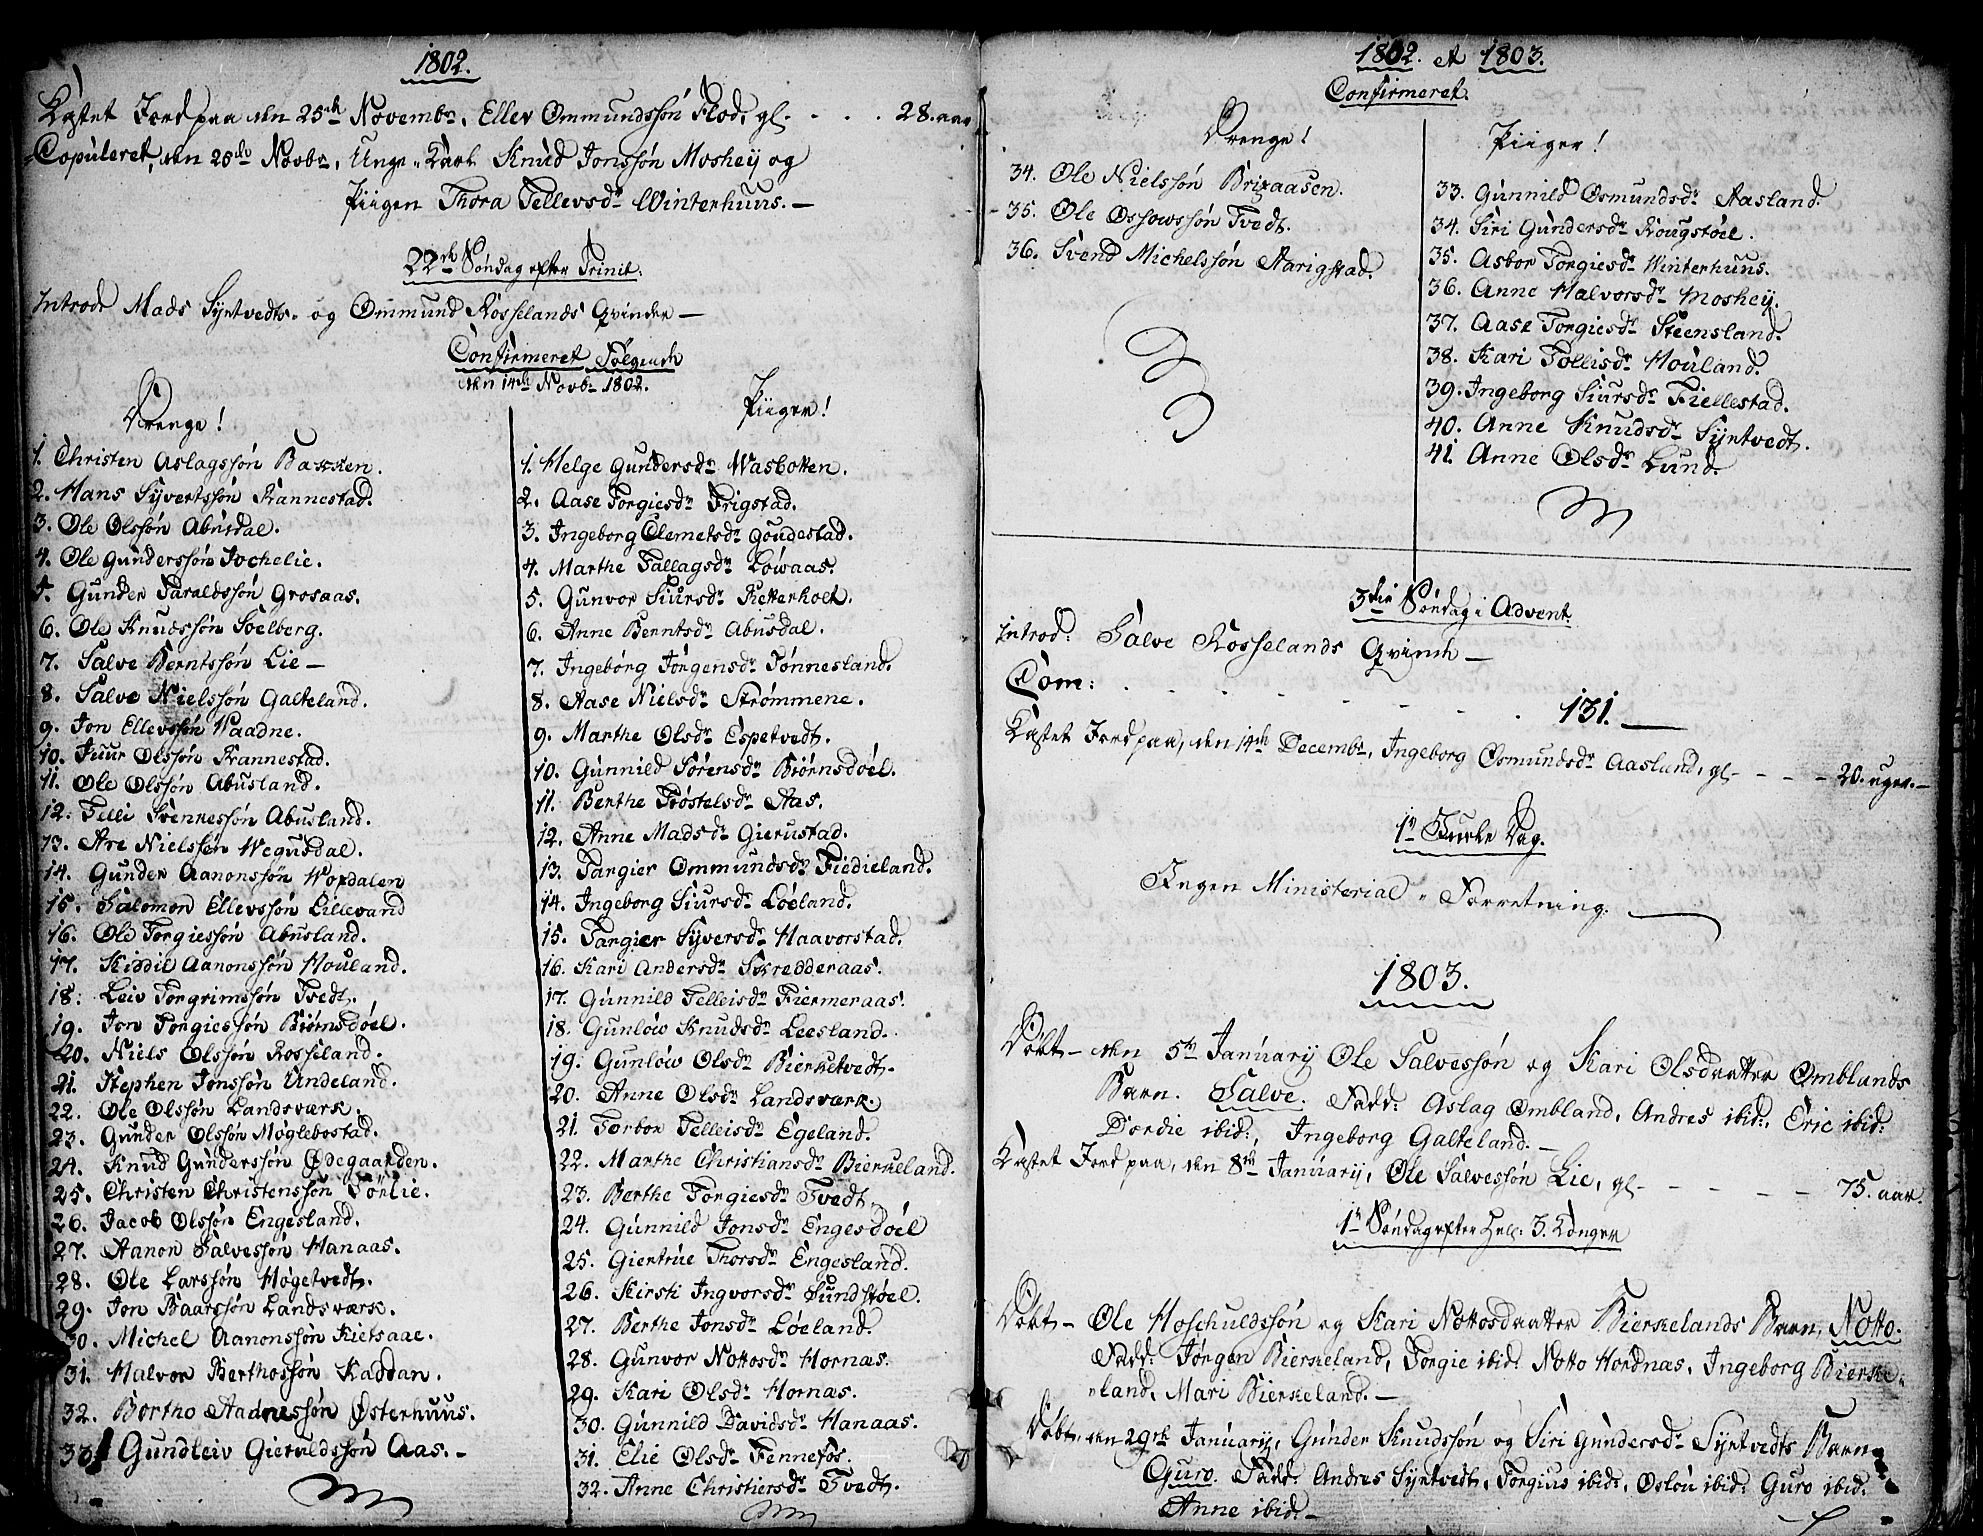 1802.
Kastet Jord paa den 25de Novembr, Ellev Ommundssøn Flod, gl. . . . . 28. aar
Copuleret, den 25de Novbr, Unge-Karl Knud Jonssøn Moshey og
Piigen Thora Tellevsdr Winterhuus. —
22de Søndag efter Trinit:
Introd: Mads Syrtvedts og Ommund Rosselands Qvinder —
Confirmeret Følgende
den 14de Novbr 1802.
Drenge!
1. Christen Aslagssøn Bakken.
2. Hans Syvertssøn Kannestad.
3. Ole Olssøn Abusdal.
4. Ole Gunderssøn Jochelie.
5. Gunder Taraldssøn Grosaas.
6. Ole Knudssøn Soelberg.
7. Salve Berntssøn Lie —
8. Salve Nielssøn Galteland.
9. Jon Ellevssøn Waadne.
10. Juur Olssøn Frannestad.
11. Ole Olssøn Abusland.
12. Telli Svenkessøn Abusland.
13. Are Nielssøn Wegusdal.
14. Gunder Aanonssøn
15. Salomon Ellevssøn Lillevand
16. Ole Torgiessøn Abusland.
17. Kiddil Aanonssøn Houland.
18. Leiv Torgrimssøn Tvedt.
19. Jon Torgiessøn Biørnsdöel.
20. Niels Olssøn Rosseland.
21. Stephen Jonssøn Undeland.
22. Ole Olssøn Landsværk.
23. Gunder Olssøn Møglebostad.
24. Knud Gunderssøn Ødegaarden.
25. Christen Christenssøn Förlie.
26. Jacob Olssøn Engesland.
27. Aanon Salvessøn Hanaas.
28. Ole Larssøn Høgetvedt.
29. Jon Baarssøn Landsværk.
30. Michel Aanonssøn Kietsaae.
31. Halvor Berthossøn Kaddan.
32. Bertho Aadnessøn Østerhuus.
33. Gundleiv Gieruldssøn Aas. —
Piiger!
1. Helge Gundersdr Wasbotten.
2. Aase Torgiesdr Frigstad.
3. Ingeborg Clemetsdr Goudestad.
4. Marthe Tallagsdr Löwaas.
5. Gunvor Siursdr Ketterholt.
6. Anne Berntsdr Abusdal.
7. Ingeborg Jörgensdr Tönnesland.
8. Aase Nielsdr Strømmene.
9. Marthe Olsdr Espetvedt.
10. Gunnild Sörensdr Biörnsdöel.
11. Berthe Tröstelsdr Aas.
12. Anne Madsdr Gierustad.
13. Targier Ommundsdr Fiedieland.
14. Ingeborg Siursdr Löeland.
15. Targier Syversdr Haavorstad.
16. Kari Andersdr Skredderaas.
17. Gunnild Telleisdr Fiermeraas.
18. Gunlow Knudsdr Leesland.
19. Gunlow Olsdr Bierketvedt.
20. Anne Olsdr Landsværk.
21. Torbor Telleisdr Egeland.
22. Marthe Christiansdr Bierkeland.
23. Berthe Torgiesdr Tvedt.
24. Gunnild Jonsdr Engesdöel
25. Giertrue Thorsdr Engesland.
26. Kirsti Ingvorsdr Sundstöel.
27. Berthe Jonsdr Löeland.
28. Gunvor Nottosdr Hornæs.
29. Kari Olsdr Hornæs.
30. Gunnild Davidsdr Hanaas.
31. Elie Olsdr Fennefos.
32. Anne Christiersdr Tvedt.
1802. et 1803.
Confirmeret.
Drenge!
34. Ole Nielssøn Brizaasen.
35. Ole Ossowssøn Tvedt.
36. Svend Michelssøn Aarigstad.
Piiger!
33. Gunnild Osmundsdr Aasland.
34. Siri Gundersdr Rougstöel.
35. Asbor Torgiesdr Winterhuus.
36. Anne Halvorsdr Moshey.
37. Aase Torgiesdr Steensland.
38. Kari Tollisdr Houland.
39. Ingeborg Siursdr Fiellestad.
40. Anne Knudsdr Syrtvedt.
41. Anne Olsdr Lund.
3die Søndag i Advent.
Introd: Salve Rosselands Qvinde —
Com: . . . . . . . . 131. —
Kastet Jord paa, den 14de Decembr, Ingeborg Osmundsdr Aasland, gl - - - - 20. uger. —
1te Juule Dag.
Ingen Ministerial-Forretning. —
1803.
Døbt — den 5te Januarij Ole Salvessøn og Kari Olsdaatter Omblands
Barn. Salve. Fadd: Aslag Ombland, Andres ibid:, Eric ibid:
Dordie ibid:, Ingeborg Galteland. —
Kastet Jord paa, den 8de Januarij, Ole Salvessøn Lie, gl - - - - - 75. aar.
1te Søndag efter Hel: 3. Konger
Døbt — Ole Hoschuldssøn og Kari Nottosdaatter Bierkelands Barn, Notto.
Fadd: Jørgen Bierkeland, Torgie ibid: Notto Hordnæs, Ingeborg Bierke-
-land, Mari Bierkeland. —
Døbt, den 29de Januarij, Gunder Knudssøn og Siri Gundersdr Syrtvedts Barn
Guro. Fadd: Andres Syrtvedt, Torgius ibid:, Oslou ibid: Guro ibid:
Anne ibid: —